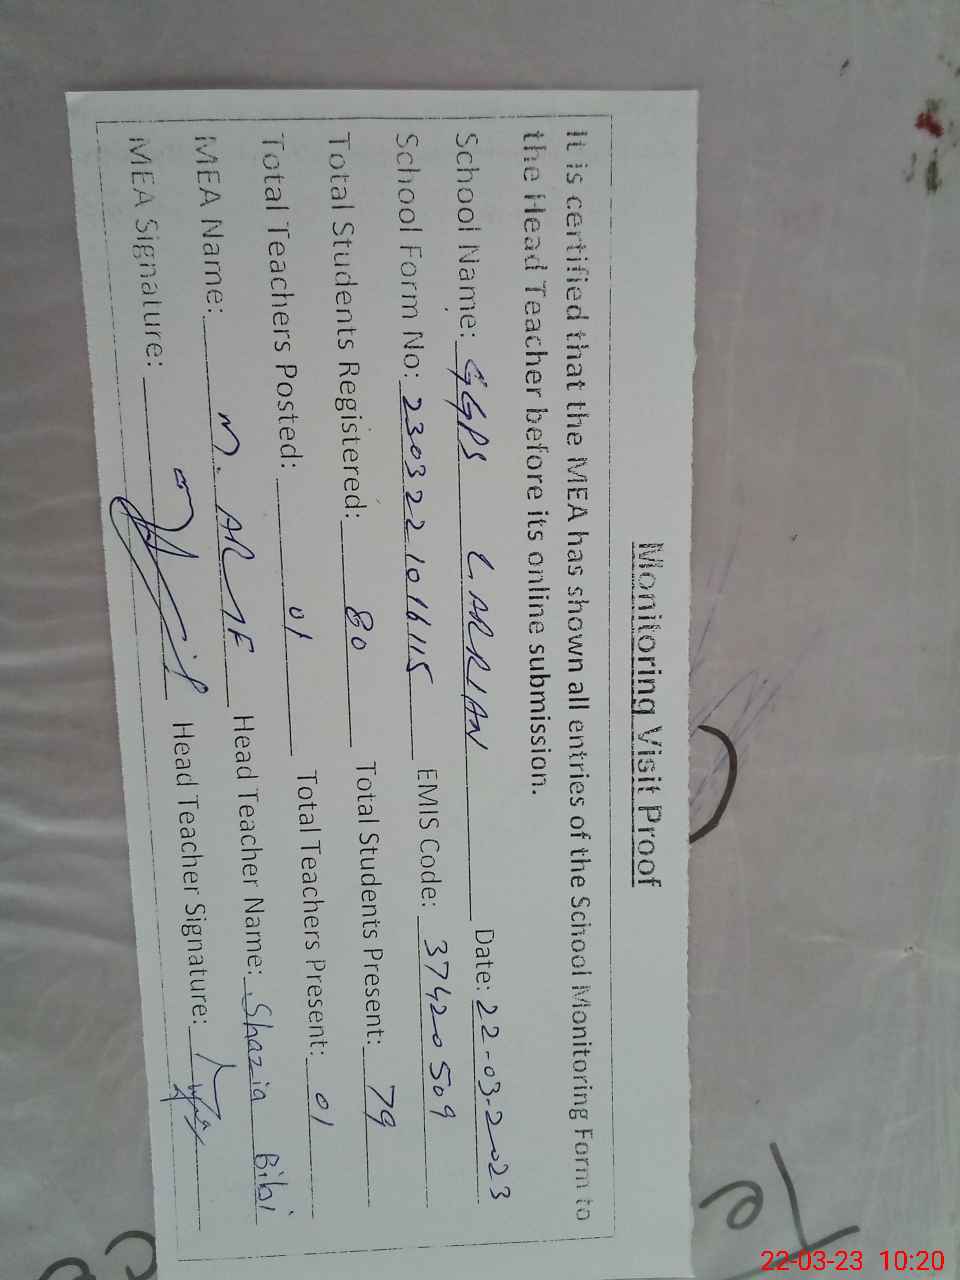 Monitoring Visit Proof
It is certified that the MEA has shown all entries of the School Monitoring Form to
the Head Teacher before its online submission.
School Name: GGPS LARRIAN Date: 22-03-2023
School Form No: 2303221016115 EMIS Code: 37420509
Total Students Registered: 80 Total Students Present: 79
Total Teachers Posted: 01 Total Teachers Present: 01
MEA Name: M. ARIF Head Teacher Name: Shazia Bibi
MEA Signature: Head Teacher Signature:
Te
22-03-23 10:20